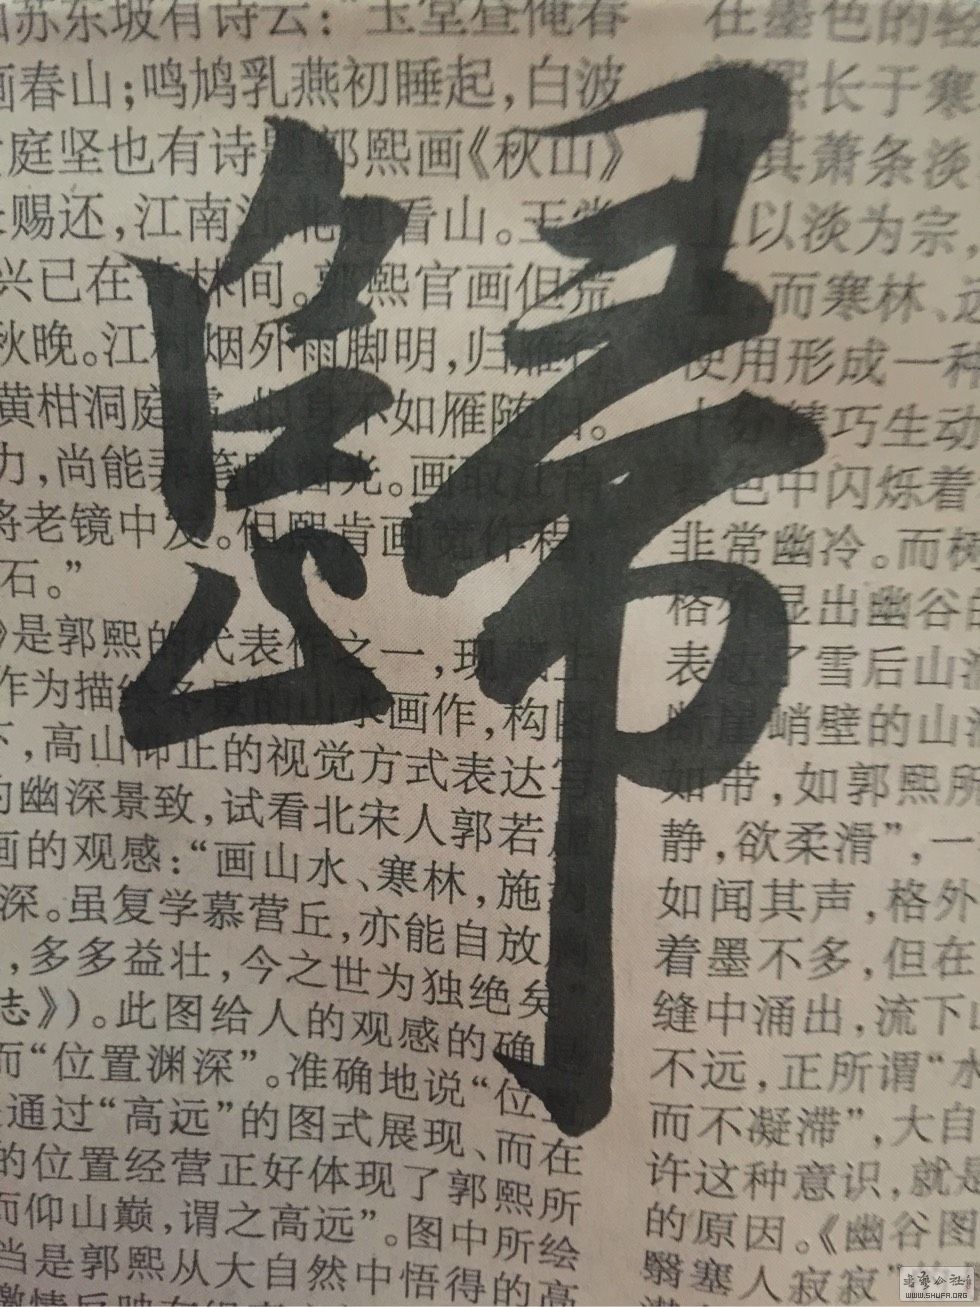 歸
苏东坡有诗云：“玉堂昼俺春
画春山；鸣鸠乳燕初睡起，白波
庭坚也有诗题郭熙画《秋山》
赐还，江南江北饱看山。玉堂
兴已在青林间。郭熙官画但荒
秋晚。江村烟外雨脚明，归雁行
黄柑洞庭霜，恨身不如雁随阳。
力，尚能弄笔映窗光。画取江南
将老镜中发。但熙肯画宽作程，
石。”
》是郭熙的代表作之一，现藏上
作为描绘冬景的山水画作，构图
下，高山仰止的视觉方式表达写
的幽深景致，试看北宋人郭若虚
画的观感：“画山水、寒林，施为
深。虽复学慕营丘，亦能自放胸
，多多益壮，今之世为独绝矣”
志》）。此图给人的观感的确
而“位置渊深”。准确地说“位置
通过“高远”的图式展现、而在
的位置经营正好体现了郭熙所
而仰山巅，谓之高远”。图中所绘
当是郭熙从大自然中悟得的高
在墨色的轻
郭熙长于寒
其萧条淡
以淡为宗，
，而寒林、远
使用形成一种
十分精巧生动
色中闪烁着
非常幽冷。而树
格外显出幽谷的
表达了雪后山
断崖峭壁的山
如带，如郭熙所
静，欲柔滑”，一
如闻其声，格外
着墨不多，但在
缝中涌出，流下
不远，正所谓“水
而不凝滞”，大自
许这种意识，就是
的原因。《幽谷图
翳塞人寂寂”
书艺公社
WWW.SHUFA.ORG